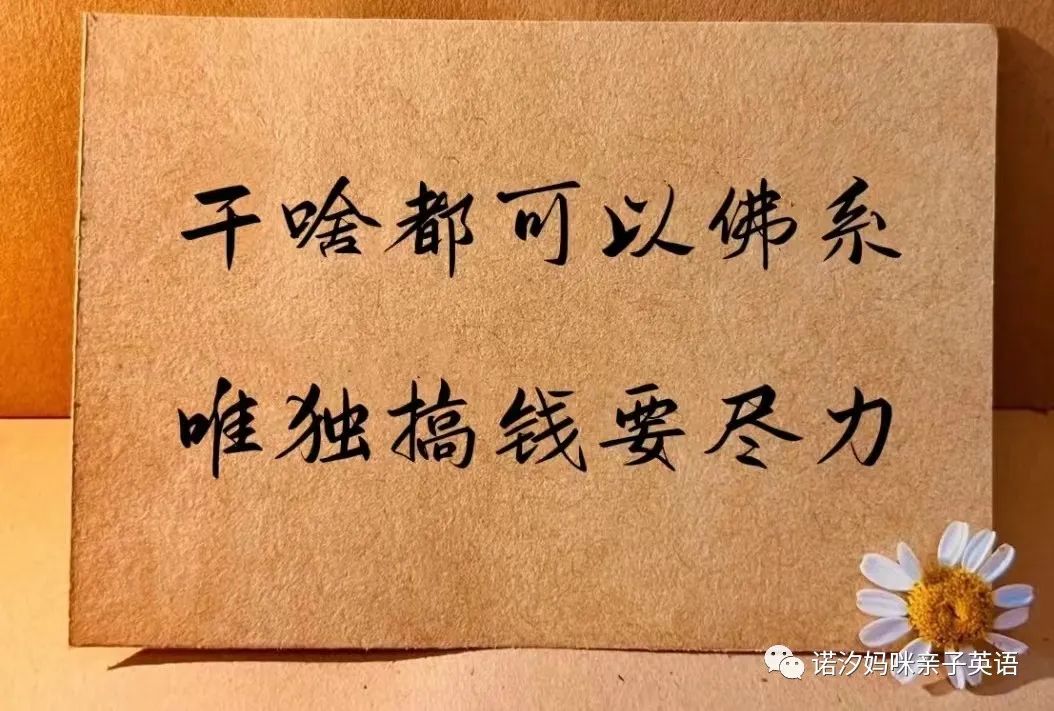 干啥都可以佛系
唯独搞钱要尽力
诺汐妈咪亲子英语